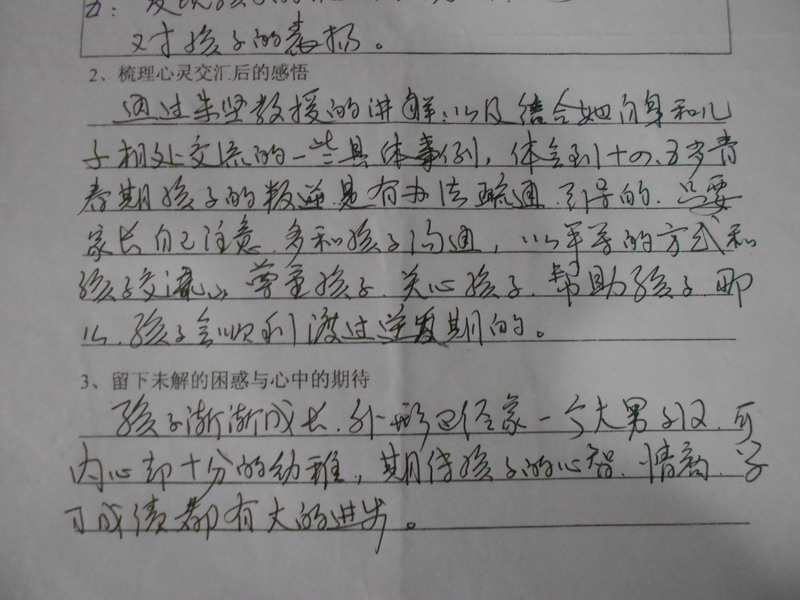 五：发现孩子的
对孩子的表扬。
2、梳理心灵交汇后的感悟
通过朱坚教授的讲解，以及结合她自身和儿
子相处交流的一些具体事例，体会到十四、五岁青
春期孩子的叛逆是有办法疏通、引导的，只要
家长自己注意，多和孩子沟通，以平等的方式和
孩子交流，尊重孩子、关心孩子、帮助孩子，那
么，孩子会顺利渡过逆反期的。
3、留下未解的困惑与心中的期待
孩子渐渐成长，外形已经象一个大男子汉，可
内心却十分的幼稚，期待孩子的心智、情商、学
习成绩都有大的进步。